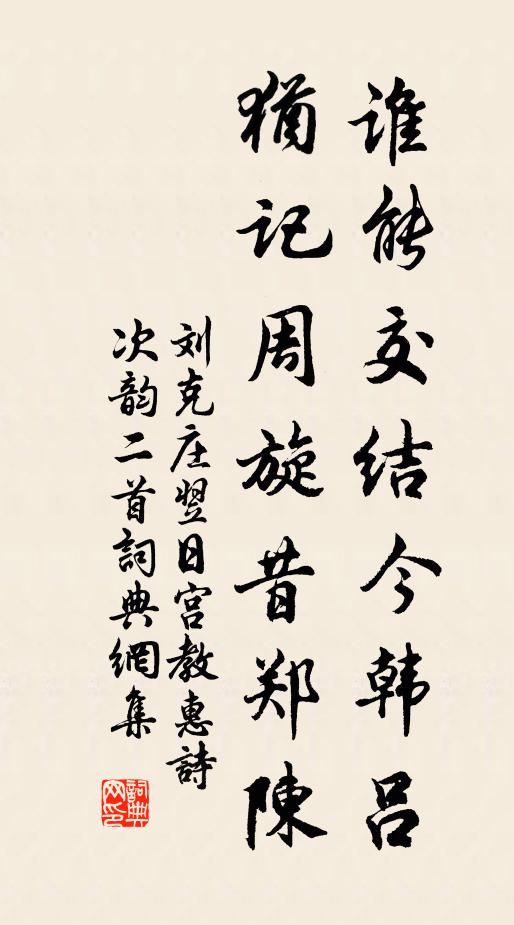 谁能交结今韩吕
犹记周旋昔郑陳
刘克庄翌日宫教惠詩
次韵二首詞典網集
詞典网印